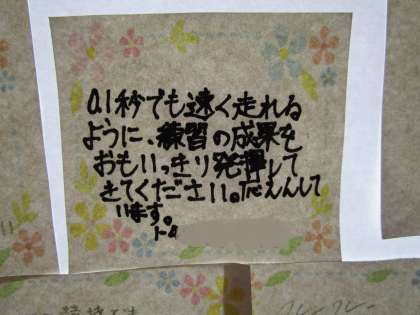 0.1秒でも速く走れる
ように、練習の成果を
おもいっきり発揮して
きてください。応えんして
います。